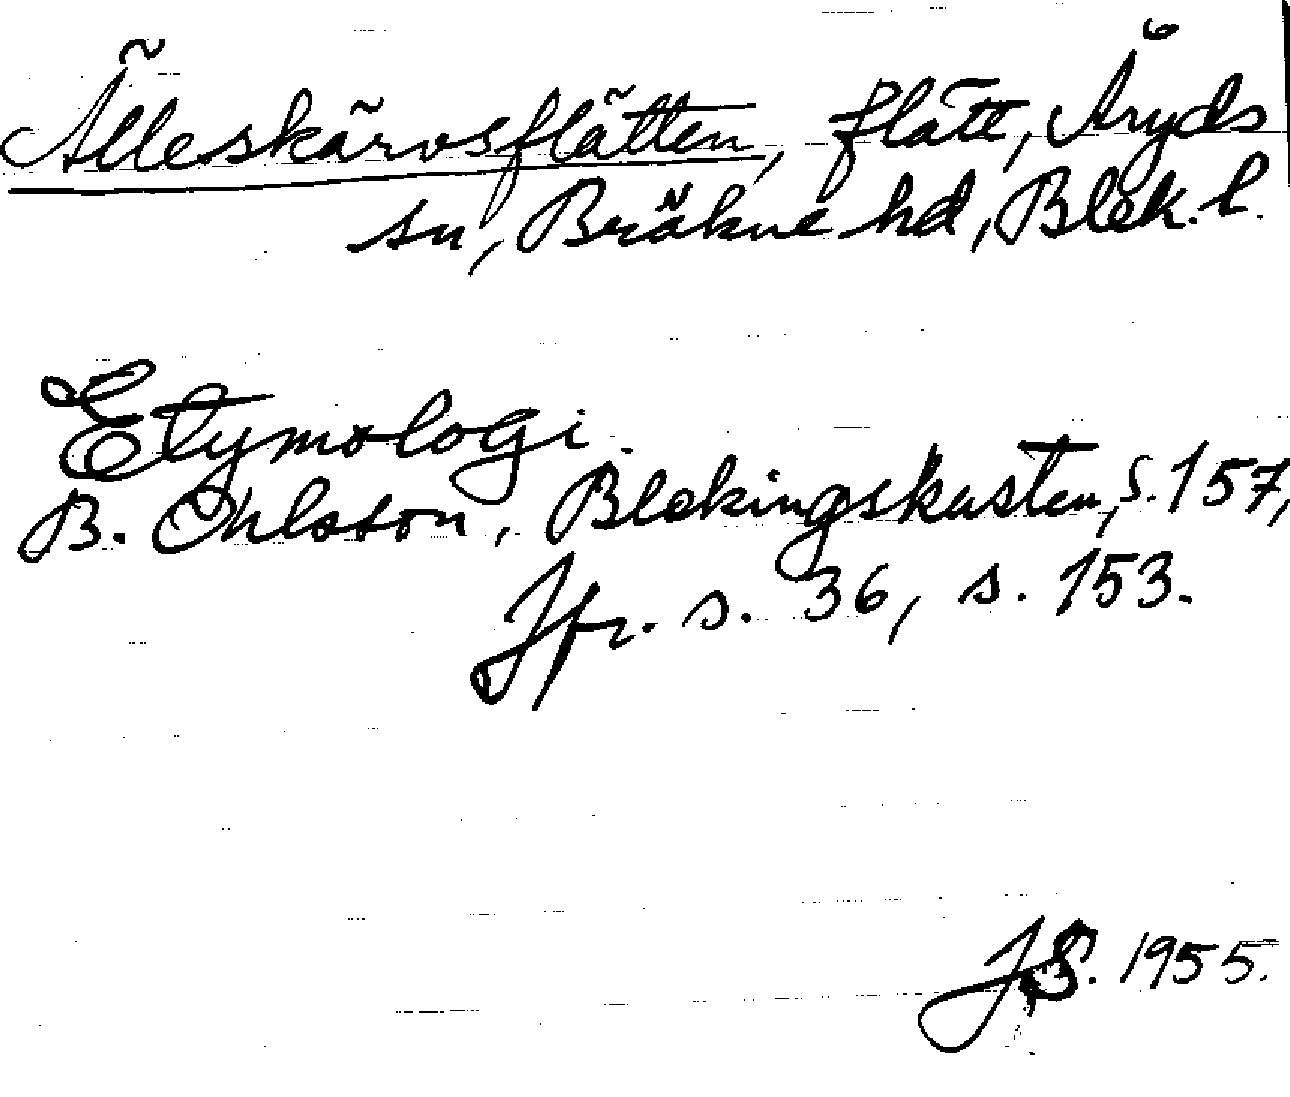 Älleskärvsflätten, flätt, Åryds
sn, Bräkne hd, Blek. l.
Etymologi.
B. Ohlsson, Blekingskusten, s. 157,
Jfr. s. 36, s. 153.
JS. 1955.